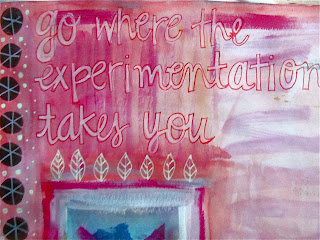 go where the
experimentation
takes you